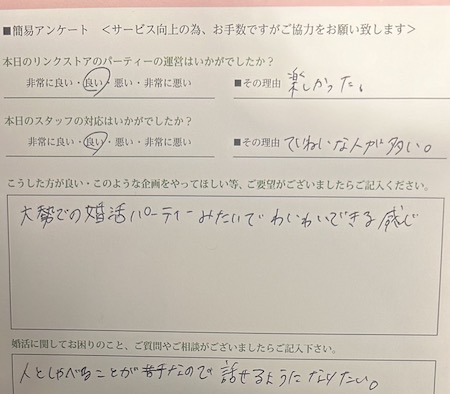 ■簡易アンケート ＜サービス向上の為、お手数ですがご協力をお願い致します＞
本日のリンクストアのパーティーの運営はいかがでしたか？
非常に良い・良い・悪い・非常に悪い ■その理由 楽しかった。
本日のスタッフの対応はいかがでしたか？
非常に良い・良い・悪い・非常に悪い ■その理由 ていねいな人が多い。
こうした方が良い・このような企画をやってほしい等、ご要望がございましたらご記入ください。
大勢での婚活パーティーみたいでわいわいできる感じ
婚活に関してお困りのこと、ご質問やご相談がございましたらご記入下さい。
人としゃべることが苦手なので話せるようになりたい。